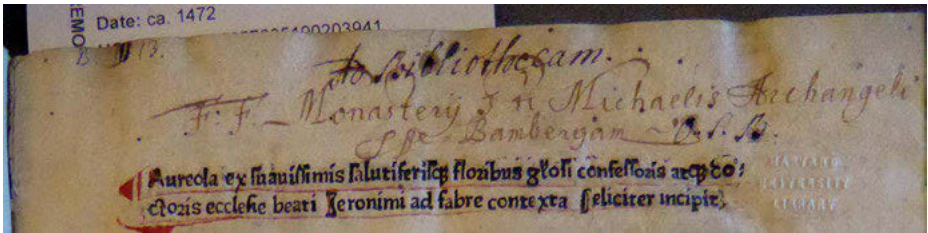 Date: ca. 1472
Ad Bibliothecam.
F. F. Monasterij S ti Michaelis Archangeli
Bambergam O. S. B.
Aureola ex suauissimis salutiferisqꝫ floribus głosi confessoris atqꝫ do⸗
ctoris ecclesie beati Jeronimi ad fabre contexta feliciter incipit;
HARVARD
UNIVERSITY
LIBRARY